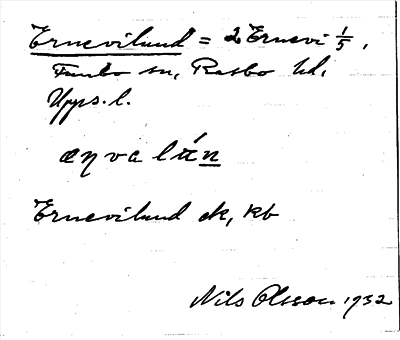 Ernevilund = 2 Ernevi 1/5,
Funbo sn, Rasbo hd.
Upps. l.
æŋvalún
Ernevilund ek, kb
Nils Olsson 1932